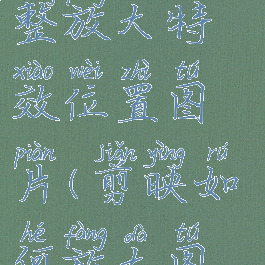 整放大特
xiào wèi zhì tú
效位置图
piàn jiǎn yìng rú
片(剪映如
hé fàng dà tú
何放大图